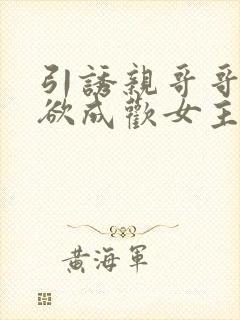 引誘親哥哥
欲成歡女主
黃海軍